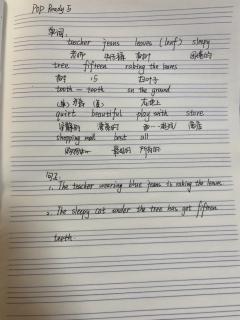 Pop Ready 5
单词:
teacher jeans leaves (leaf) sleepy
老师 牛仔裤 树叶 困倦的
tree fifteen raking the leaves
树 15 扫叶子
tooth - teeth on the ground
(单) 牙齿 (复) 在地上
quiet beautiful play with store
安静的 漂亮的 和...玩 商店
shopping mall best all
购物中心 最好的 所有的
句子:
1. The teacher wearing blue jeans is raking the leaves.
2. The sleepy cat under the tree has got fifteen
teeth.